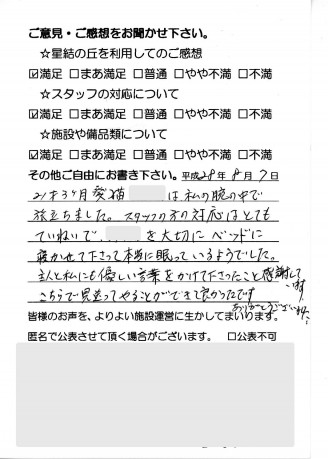 ご意見・ご感想をお聞かせ下さい。
☆星結の丘を利用してのご感想
☑満足 □まあ満足 □普通 □やや不満 □不満
☆スタッフの対応について
☑満足 □まあ満足 □普通 □やや不満 □不満
☆施設や備品類について
☑満足 □まあ満足 □普通 □やや不満 □不満
その他ご自由にお書き下さい。平成28年8月7日
21才3ヶ月愛猫 は私の腕の中で
旅立ちました。スタッフの方の対応はとても
ていねいで を大切にベッドに
寝かせて下さって本当に眠っているようでした。
主人と私にも優しい言葉をかけて下さったこと感謝しています。
こちらで見送ってやることができて良かったです
ありがとうございました。
皆様のお声を、よりよい施設運営に生かしてまいります。
匿名で公表させて頂く場合がございます。 □公表不可